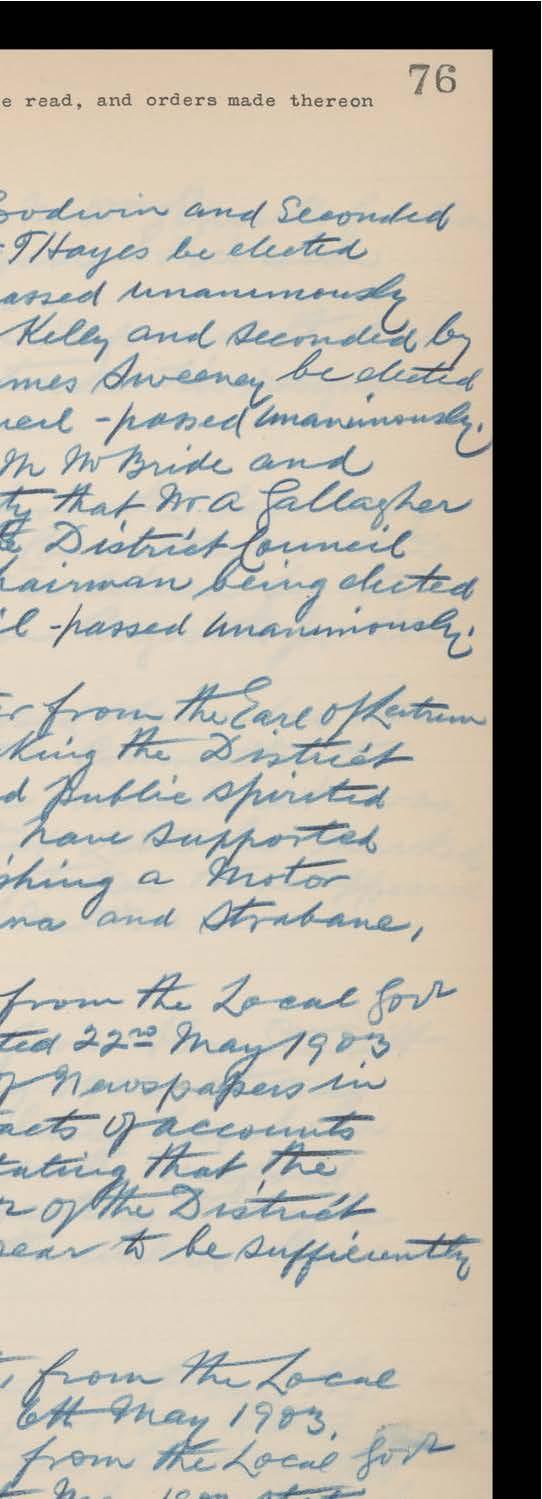 76
e read, and orders made thereon
Goodwin and Seconded
T Hayes be elected
assed unanimously
Kelly and seconded by
mes Sweeney be elected
ncil - passed unanimously.
M McBride and
ty that Mr A Gallagher
District Council
hairman being elected
il - passed unanimously.
er from the Earl of Leitrim
king the District
d public spirited
have supported
shing a Motor
na and Strabane,
from the Local Govt
ted 22nd May 1903
of Newspapers in
acts of accounts
tating that the
r of the District
pear to be sufficiently
from the Local
6th May 1903.
from the Local Govt